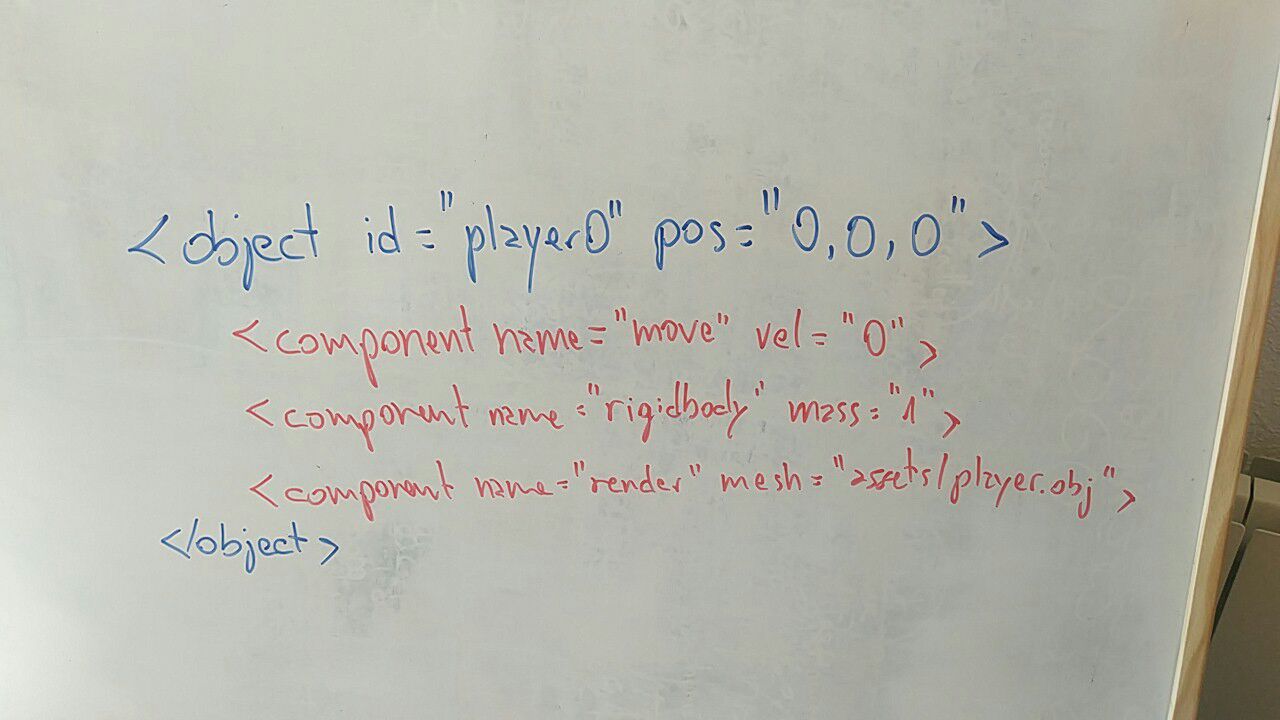 <object id="player0" pos="0,0,0">
<component name="move" vel="0">
<component name="rigidbody" mass="1">
<component name="render" mesh="assets/player.obj">
</object>